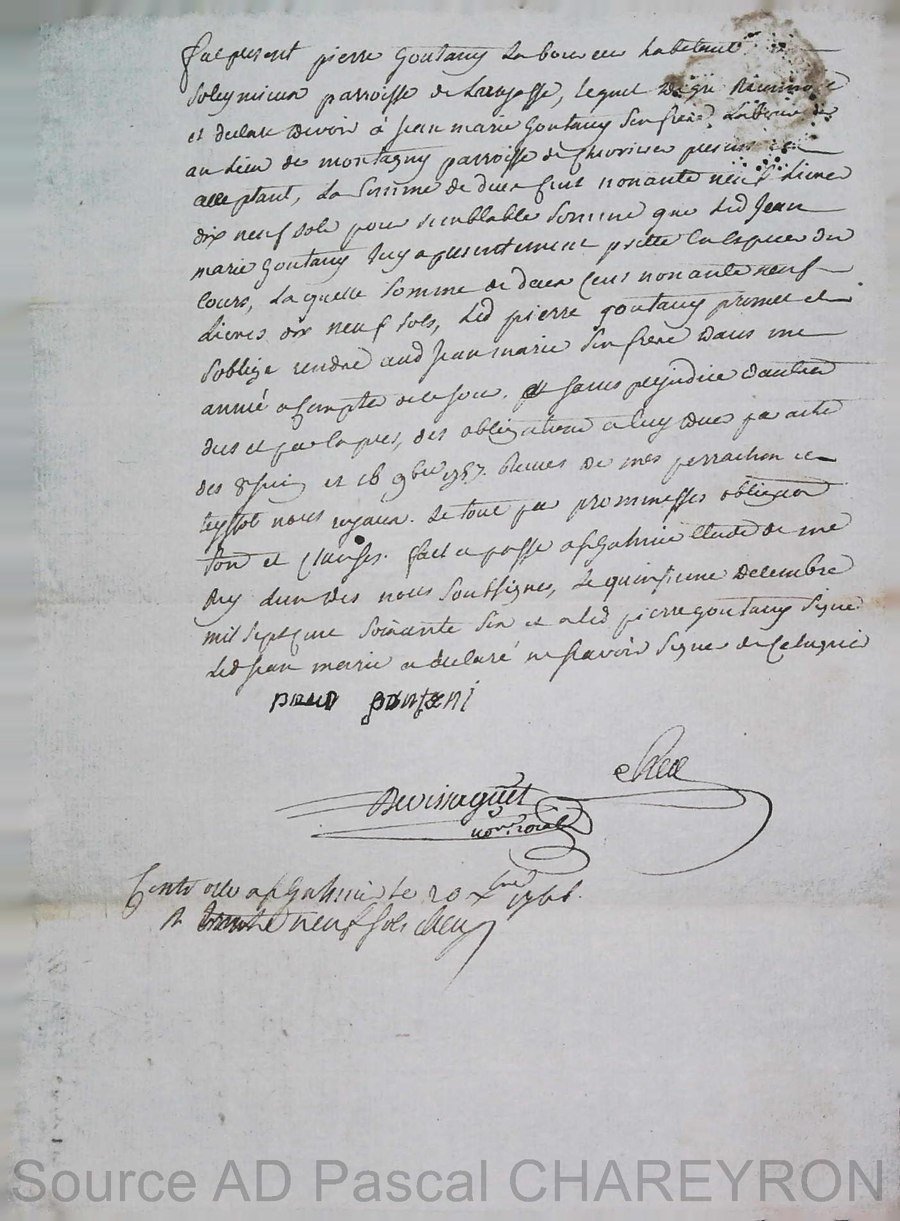 fut present pierre Goutany laboureur habitant
Soleymieux parroisse de Larajasse, lequel de gre
et declare devoir à Jean marie Goutany Son frere, laboureur
au lieu de montagny parroisse de Chevrieres present et
acceptant, La Somme de deux Cent nonante neuf Livres
dix neuf sols pour semblable Somme que Led Jean
marie Goutany luy a presentement prette en especes du
Cours, Laquelle Somme de deux Cent nonante neuf
Livres dix neuf sols, Led pierre goutany promet et
Soblige rendre aud Jean marie Son frere dans une
année a Compter de ce jour, et sans prejudice dautres
deus et par Expres, des obligations a luy dues par acte
des 8 juin et 16 9bre 1757. Recues de mes perrachon et
teyssot nores royaux. Le tout par prommesses obligaon
Son et Clauses. fait et passe a st Galmier Etude de me
Rey lun des nores Soussignes, Le quinzieme Decembre
mil sept cent Soixante Six et a led pierre goutany Signe
Led Jean marie a declaré ne scavoir Signer de Ce enquis
goutani
Devissaguet Rey
nore royal
Controlle a st Galmier le 20 xbre 1766.
R neuf sols Rey
Source AD Pascal CHAREYRON